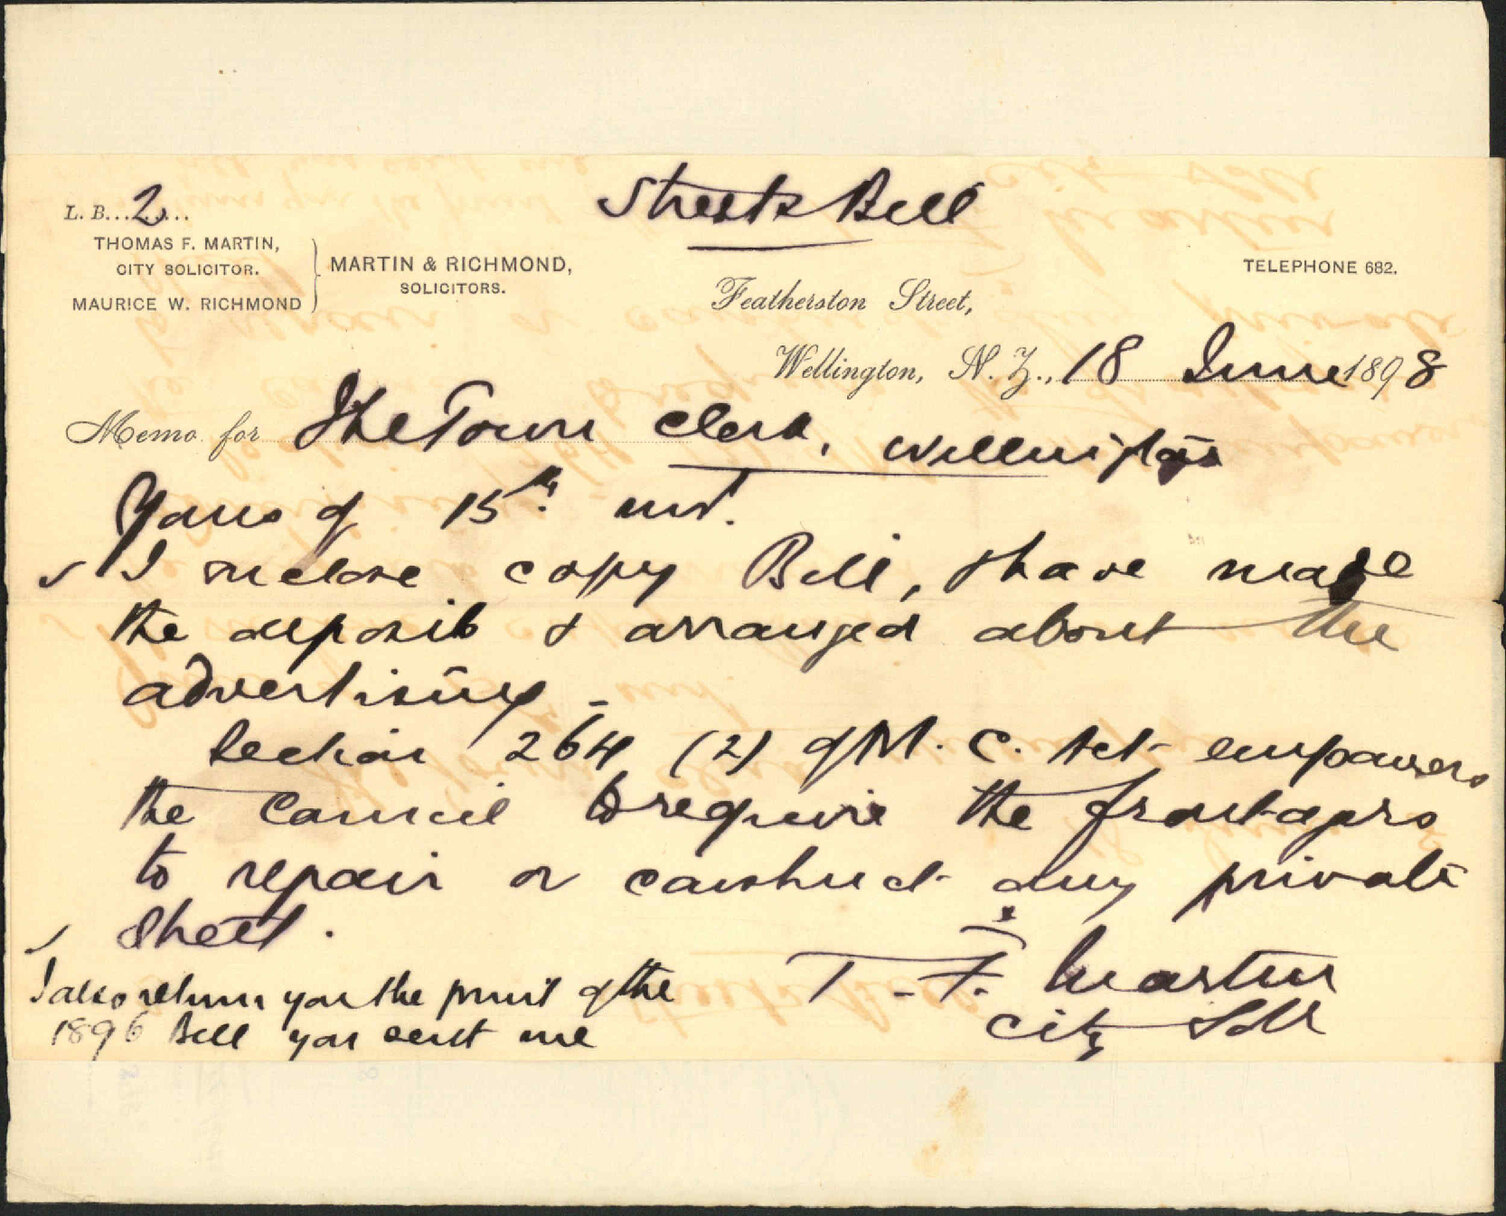 L. B. 2
Streets Bill
THOMAS F. MARTIN,
CITY SOLICITOR.
MAURICE W. RICHMOND
MARTIN & RICHMOND,
SOLICITORS.
TELEPHONE 682.
Featherston Street,
Wellington, N.Z., 18 June 1898
Memo for The Town Clerk, Wellington
Yours of 15th inst.
I enclose copy Bill, & have made
the deposit & arranged about the
advertising -
Section 264 (2) of M. C. Act empowers
the Council to require the frontagers
to repair or construct any private
street.
T. F. Martin
City Solr
I also return you the print of the
1896 Bill you sent me